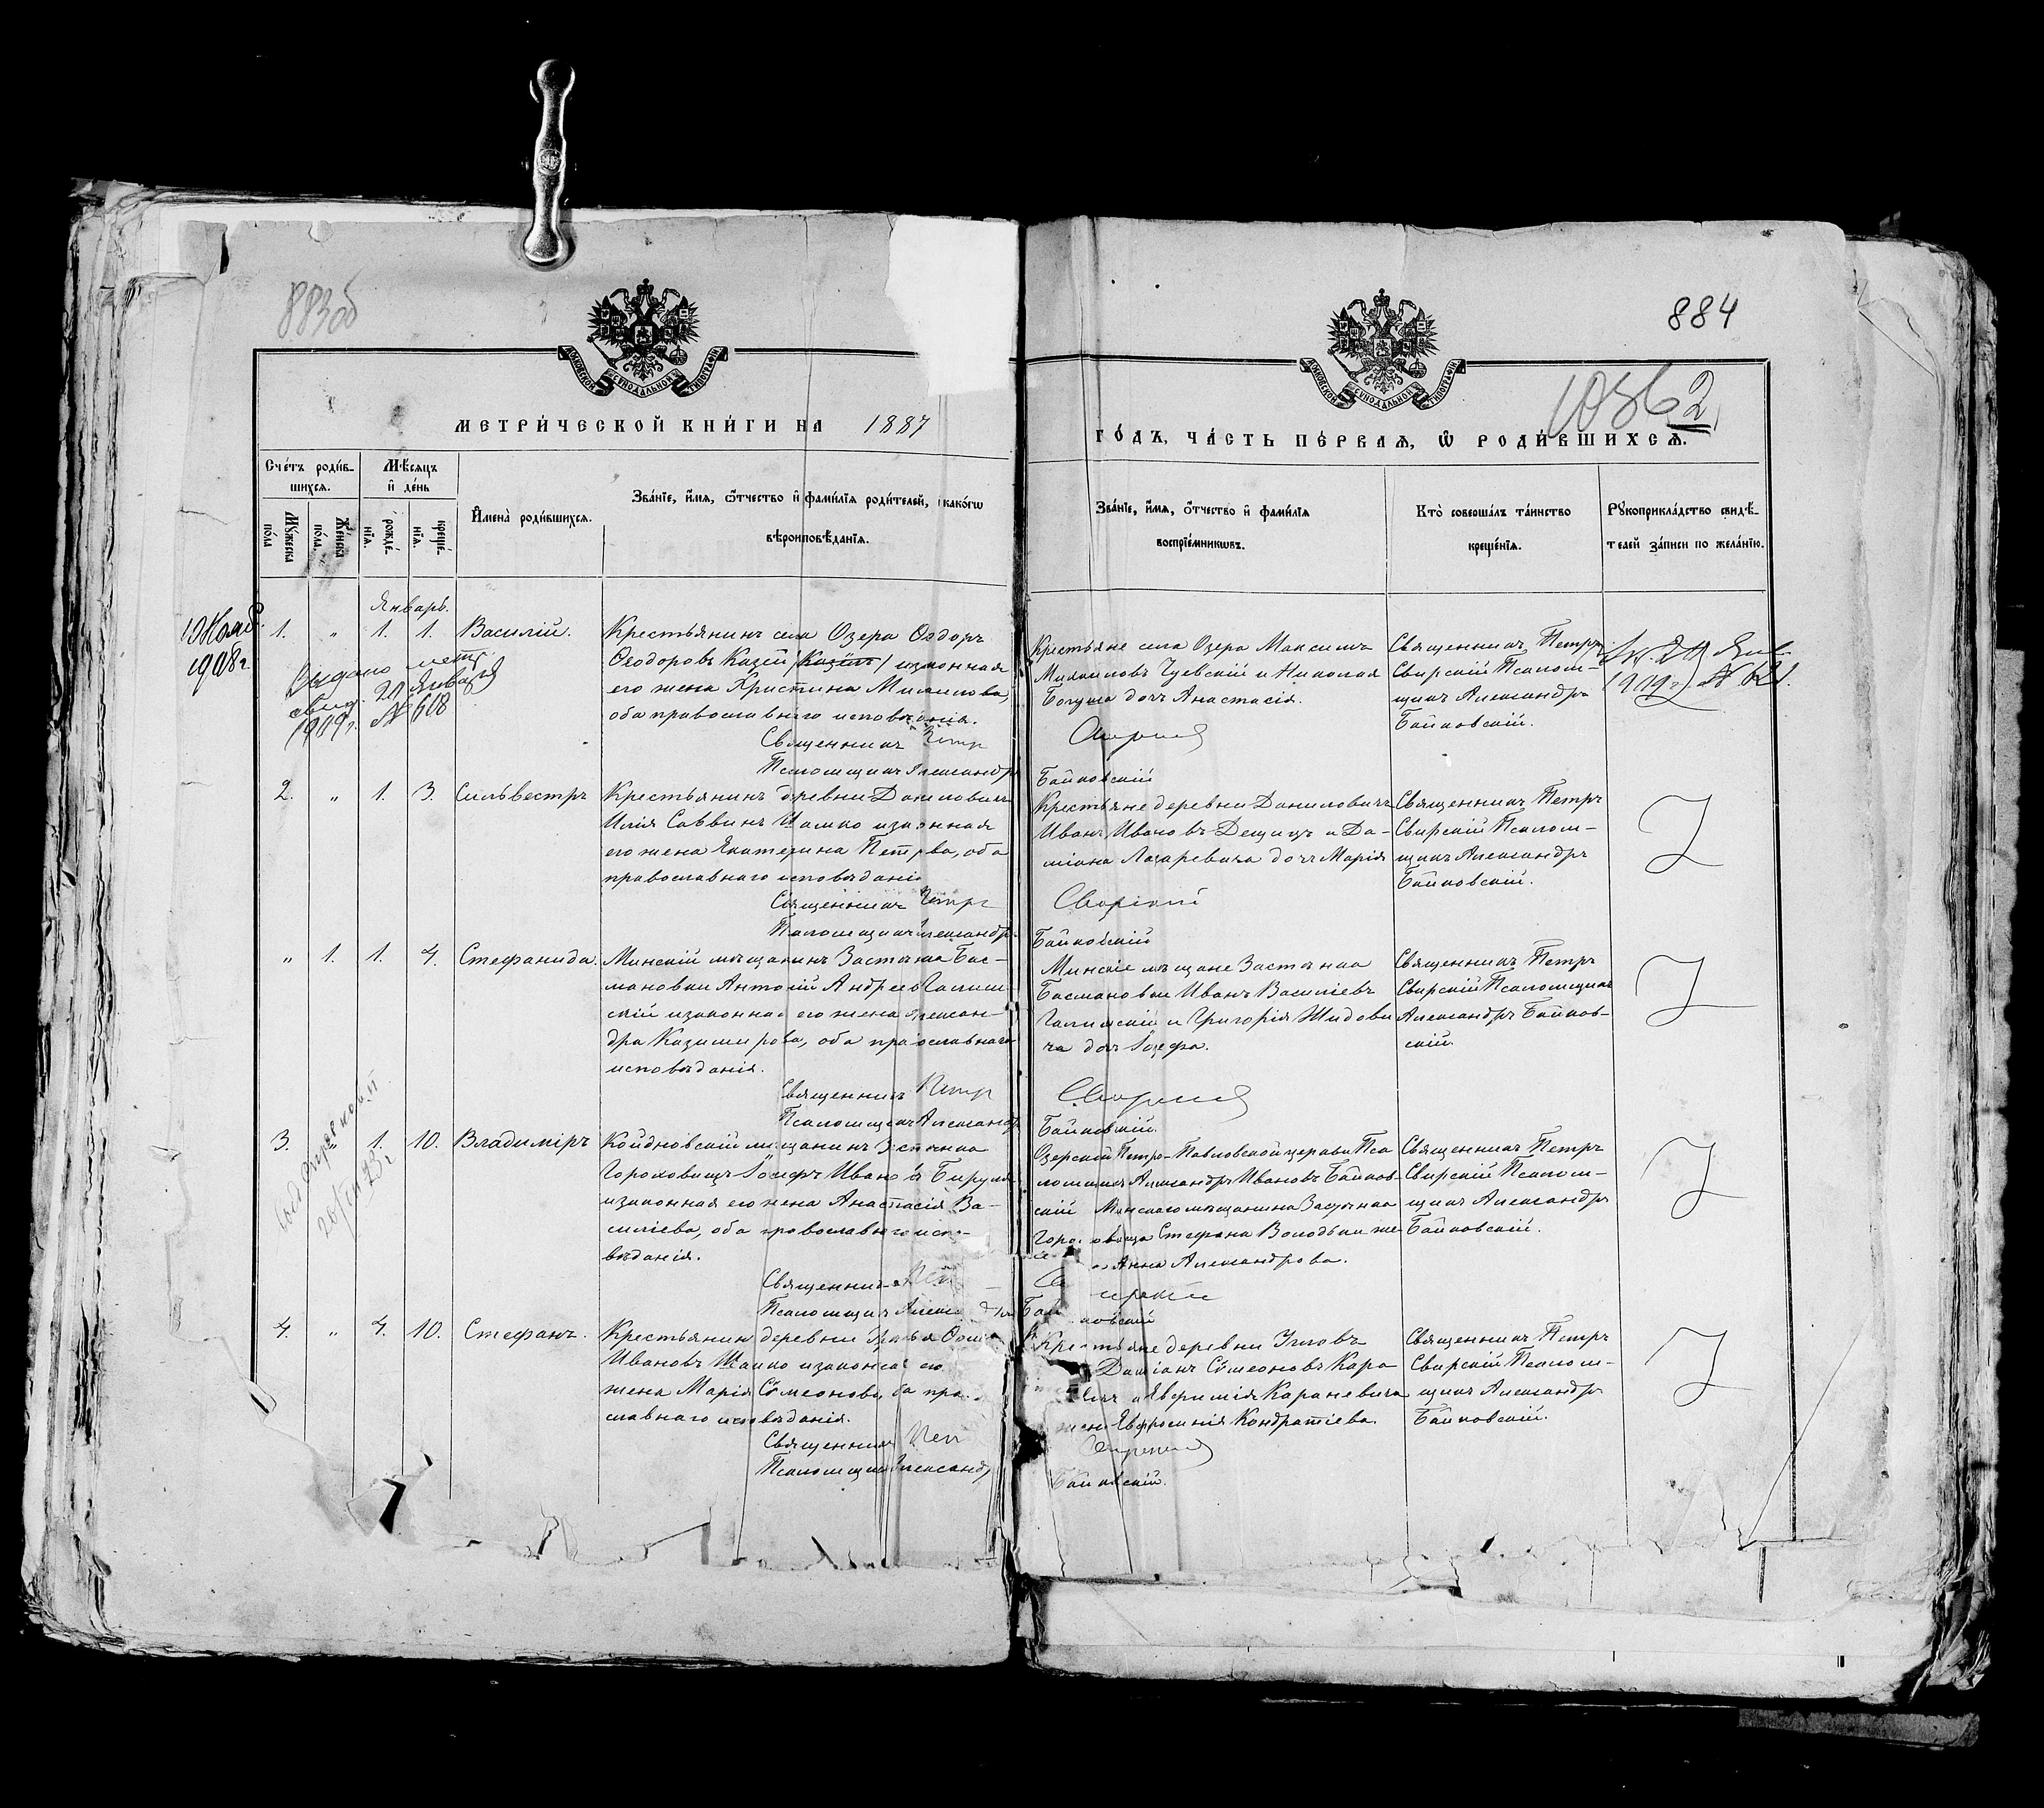 883об
884
1056
2
МОСКОВСКОЙ СѴНОДАЛЬНОЙ ТИПОГРАФІИ
МОСКОВСКОЙ СѴНОДАЛЬНОЙ ТИПОГРАФІИ
МЕТРИ́ЧЕСКОЙ КНИ́ГИ НА 1887
ГО́ДЪ, ЧА́СТЬ ПЕ́РВАЯ, Ѿ РОДИ́ВШИХСЯ.
Сче́тъ роди́в-
шихся.
Мѣ́сяцъ
и҆ де́нь
Мꙋ́жеска
по́ла
Же́нска
по́ла.
рожде́-
нїя.
креще́-
нїя.
И҆мена̀ роди́вшихся.
Зва́нїе, и҆́мя, ѻ҆́тчество и҆ фами́лїя роди́телей, и҆ како́гѡ
вѣроисповѣ́данїя.
Зва́нїе, и҆́мя, ѻ҆́тчество и҆ фами́лїя
воспрїе́мникѡвъ.
Кто̀ соверша́лъ та́инство
креще́нїя.
Рꙋкоприкла́дство свидѣ́-
телей за́писи по жела́нїю.
Январь.
1908 г.
1. " 1. 1. Василій.
Крестьянинъ села Озера Ѳедоръ
Ѳеодоровъ Казей /Казѣнъ/ и законная
его жена Христина Михаилова,
оба православнаго исповѣданія.
Священникъ Петръ
Псаломщикъ Александръ
Выдано метр.
свид. 20 Января
1909 г. № 608
Крестьяне села Озера Максимъ
Михаиловъ Чуевскій и Николая
Богуша дочь Анастасія.
Свирскій
Байковскій
Священникъ Петръ
Свирскій Псалом-
щикъ Александръ
Байковскій.
2. " 1. 3. Сильвестръ
Крестьянинъ деревни Даниловичъ
Илія Саввинъ Шамко и законная
его жена Екатерина Петрова, оба
православнаго исповѣданія
Священникъ Петръ
Псаломщикъ Александръ
Крестьяне деревни Даниловичъ
Иванъ Ивановъ Дещицъ и Да-
міана Лазаревича дочь Марія
Свирскій
Байковскій
Священникъ Петръ
Свирскій Псалом-
щикъ Александръ
Байковскій.
" 1. 1. 4. Стефанида.
Минскій мѣщанинъ Застѣнка Бас-
мановки Антоній Андреевъ Галим-
скій и законная его жена Алексан-
дра Казимирова, оба православнаго
исповѣданія.
Священникъ Петръ
Псаломщикъ Александръ
Минскіе мѣщане Застѣнка
Басмановки Иванъ Василіевъ
Галимскій и Григорія Жидови
ча дочь Іозефа.
Свирскій
Байковскій.
Священникъ Петръ
Свирскій Псаломщикъ
Александръ Байков-
скій.
3. " 1. 10. Владиміръ
Койдновскій мѣщанинъ Застѣнка
Гороховищъ Іосифъ Ивановъ Бируля
и законная его жена Анастасія Ва-
силіева, оба православнаго испо-
вѣданія.
Священникъ Пет
Псаломщикъ Александръ
Озерской Петро-Павловской церкви Пса
ломщикъ Александръ Ивановъ Байков
скій Минскаго мѣщанина Застѣнка
Гороховища Стефана Володьки же
Анна Александрова.
Свирскій
Байковскій
Священникъ Петръ
Свирскій Псалом-
щикъ Александръ
Байковскій.
4. " 4. 10. Стефанъ.
Крестьянинъ деревни
Ивановъ Шамко и законная его
жена Марія Сѵмеонова, оба пра
славнаго исповѣданія.
Священникъ Пет
Псаломщикъ Александръ
Крестьяне деревни Угловъ
Даміанъ Сѵмеоновъ Кара
и Евфимія Караневича
жена Евфросинія Кондратіева
Свирскій
Байковскій.
Священникъ Петръ
Свирскій Псалом-
щикъ Александръ
Байковскій.